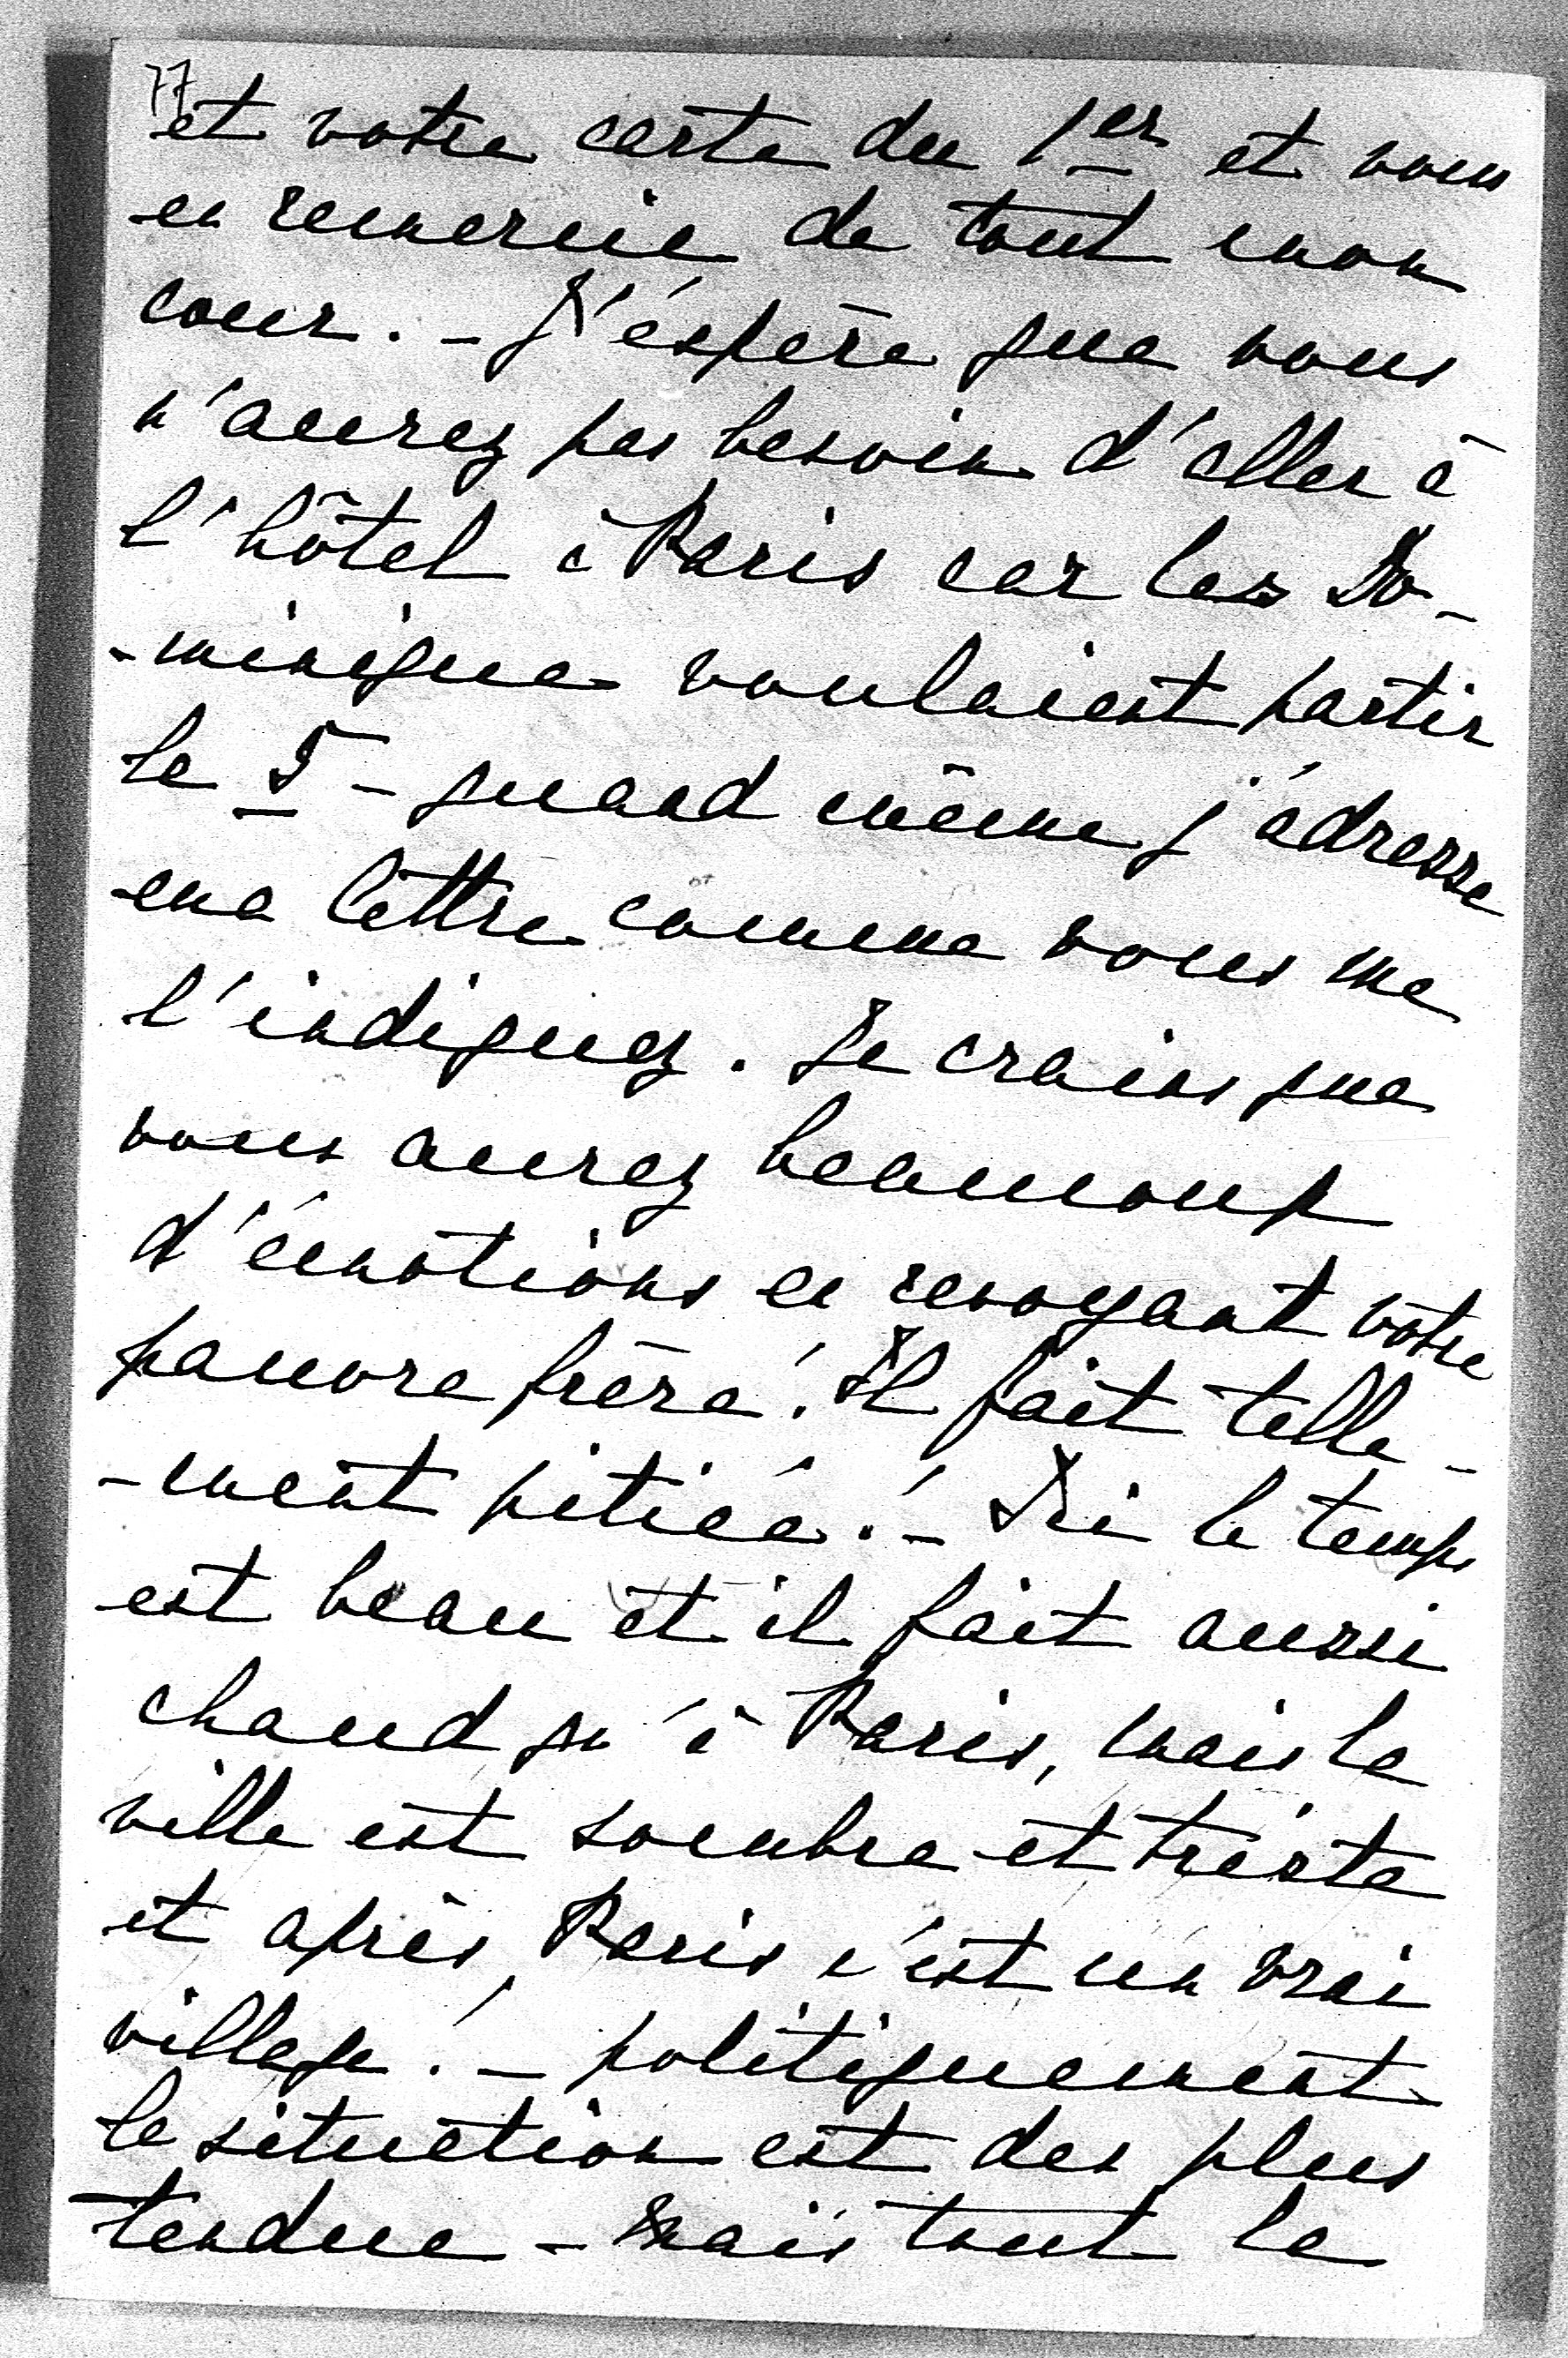 77
et votre carte du 1er et vous
en remercie de tout mon
coeur. - J'éspère que vous
n'aurez pas besoin d'aller à
l'hôtel à Paris car les Do-
-minique voulaient partir
le 5 - quand même j'adresse
ma lettre comme vous me
l'indiquez. Je crains que
vous aurez beaucoup
d'émotions en revoyant votre
pauvre frère! Il fait telle-
-ment pitiée! - Ici le temps
est beau et il fait aussi
chaud qu'à Paris, mais la
ville est sombre et triste
et après Paris c'est un vrai
village! - politiquement
la situation est des plus
tendue - mais tout le